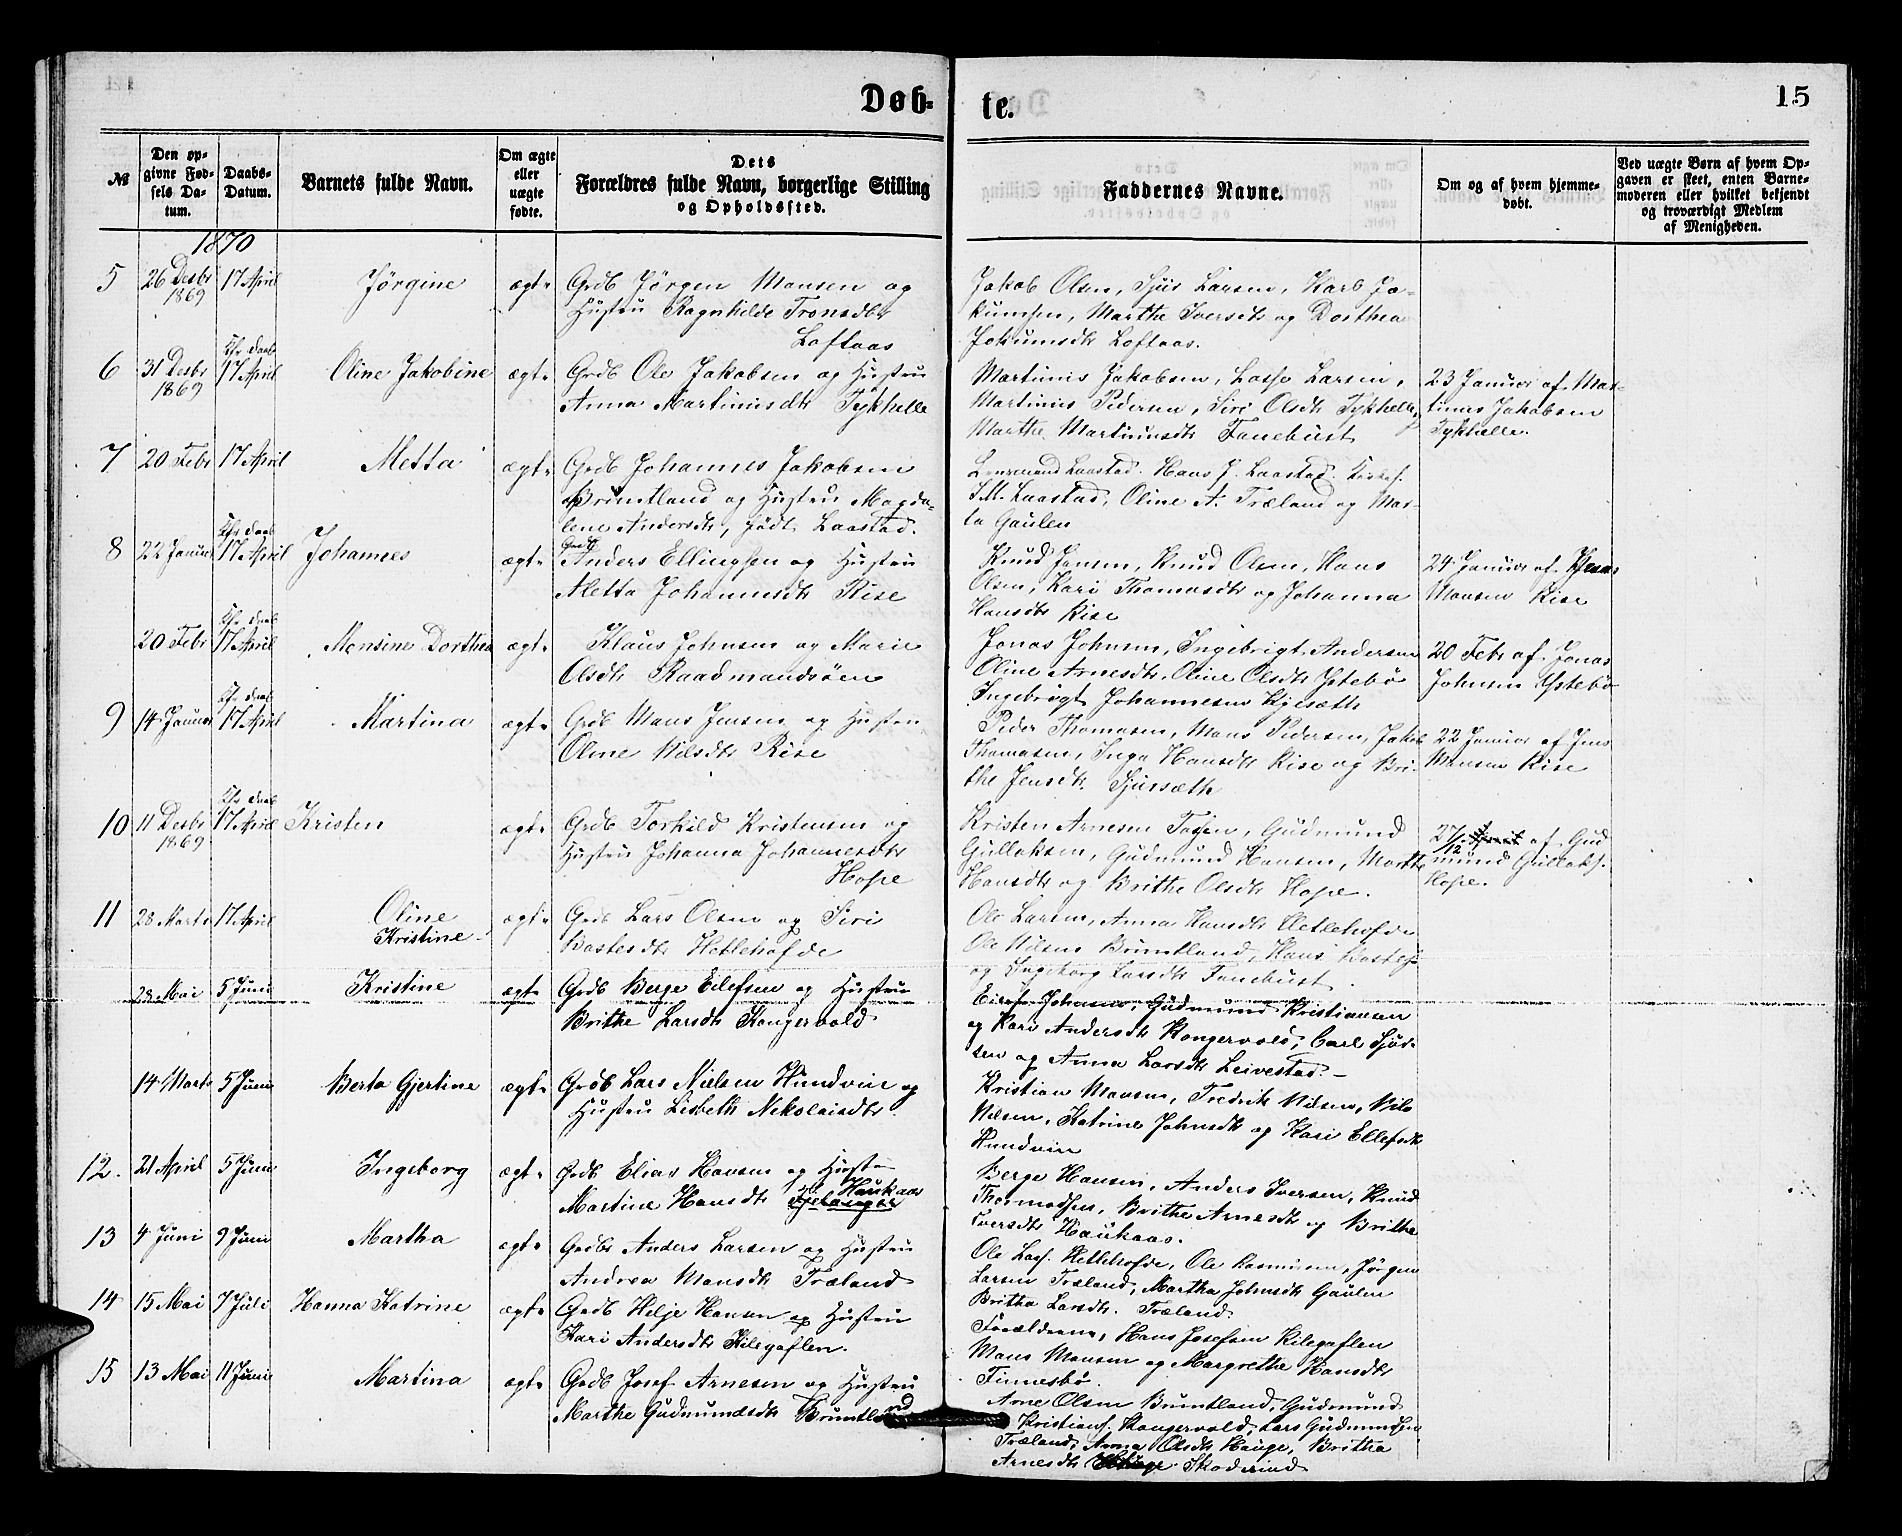 Døb-
te.
15
№
Den op-
givne Fød-
sels Da-
tum.
Daabs-
Datum.
Barnets fulde Navn.
Om ægte
eller
uægte
fødte.
Dets
Forældres fulde Navn, borgerlige Stilling
og Opholdssted.
Faddernes Navne.
Om og af hvem hjemme-
døbt.
Ved uægte Børn af hvem Op-
gaven er skeet, enten Barne-
moderen eller hvilket bekjendt
og troværdigt Medlem
af Menigheden.
1870
5 26 Desbr 17 April Jørgine ægte Grdb Jørgen Monsen og
1869 Hustru Ragnhilde Tronsdtr
Loftaas
Jakob Olsen, Sjur Larsen, Karl Jo-
kumsen, Marthe Iversdtr og Dorthea
Jokumsdtr Loftaas.
6 31 Desbr 17 April Oline Jakobine ægte Grdb Ole Jakobsen og Hustru
1869 Anna Martinusdtr Tykhelle
Martinus Jakobsen, Lasse Larsen,
Martinus Pedersen, Siri Olsdtr Tykhelle,
Marthe Martinusdtr Fanebust
23 Januar af Mar-
tinus Jakobsen
Tykhelle.
7 20 Febr 17 April Metta ægte Grdb Johannes Jakobsen
Bruntland og Hustru Magda-
lene Andersdtr, født Laastad.
Lensmand Laastad. Hans J. Laastad.
S.M. Laastad, Oline A. Træland og Mar-
ta Gaulen
8 22 Januar 17 April Johannes ægte Grdb
Anders Ellingsen og Hustru
Metta Johannesdtr Rise
Knud Jensen, Knud Olsen, Hans
Olsen, Kari Thomasdtr og Johanna
Hansdtr Rise
24 Januar af
Monsen Rise
20 Febr 17 April Monsine Dorthea ægte Klaus Johnsen og Marie
Olsdtr Raadmandsøen
Jonas Johnsen, Ingebrigt Andersen
Oline Arnesdtr, Oline Olsdtr Ystebø
Ingebrigt Johannesen
20 Febr af Jonas
Johnsen Ystebø
9 14 Januar 17 April Martina ægte Grdb Mons Jensen og Hustru
Oline Nilsdtr Rise
Peder Thomasen, Mons Pedersen, Jakob
Thomasen, Inga Hansdtr Rise og Bri-
the Jensdtr Sjursæth
22 Januar af Jens
Monsen Rise
10 11 Desbr 17 April Kristen ægte Grdb Torkild Kristensen og
1869 Hustru Johanna Johannesdtr
Hope
Kristen Arnesen, Gudmund
Gullaksen, Gudmund Hansen, Marthe
Hansdtr og Brithe Olsdtr Hope.
27/12 af Gud
mund Gullaks.
Hope.
11 28 Marts 17 April Oline ægte Grdb Lars Olsen og Siri
Kristine Bastesdtr Hetlehofde
Ole Larsen, Anna Hansdtr Hetlehofde
Ole Nilsen Bruntland, Hans
og Ingeborg Larsdtr Fanebust
28 Mai 5 Juni Kristine ægte Grdb Berge Eilefsen og Hustru
Brithe Larsdtr Kongervold
Johansen, Gudmund Kristiansen
og Kari Andersdtr Kongervold, Carl Sjur-
sen og Anna Larsdtr Leivestad.
14 Marts 5 Juni Berta Gjertine ægte Grdb Lars Nielsen Hundvin og
Hustru Lisbeth Nikolaisdtr
Kristian Monsen, Fredrik Nilsen, Nils
Nilsen, Katrine Johnsdtr og Kari Ellefsdtr
Hundvin
12. 21 April 5 Juni Ingeborg ægte Grdb Elias Hansen og Hustru
Martine Hansdtr Haukaas
Berge Hansen, Anders Iversen, Knud
Thormodsen, Brithe Arnesdtr og Brithe
Iversdtr Haukaas.
13 4 Juni 9 Juni Martha ægte Grdbr Anders Larsen og Hustru
Andrea Monsdtr Træland
Ole Lass. Hetlehofde, Ole Rasmussen, Jørgen
Larsen Træland, Martha Johnsdtr Gaulen
Britha Larsdtr. Træland.
14 15 Mai 7 Juli Hanna Katrine ægte Grdb Helje Hansen og Hustru
Kari Andersdtr Kilegaflen.
Forældrene, Hans Josefsen Kilegaflen
Mons Monsen og Margrethe Hansdtr
Finnesbø.
15 13 Mai 11 Juni Martina ægte Grdb Josef Arnesen og Hustru
Marthe Gudmundsdtr Bruntland
Arne Olsen Bruntland, Gudmund
Kristians. Kongervold, Lars Gudmundsen
Træland, Anna Olsdtr Hauge, Britha
Arnesdtr